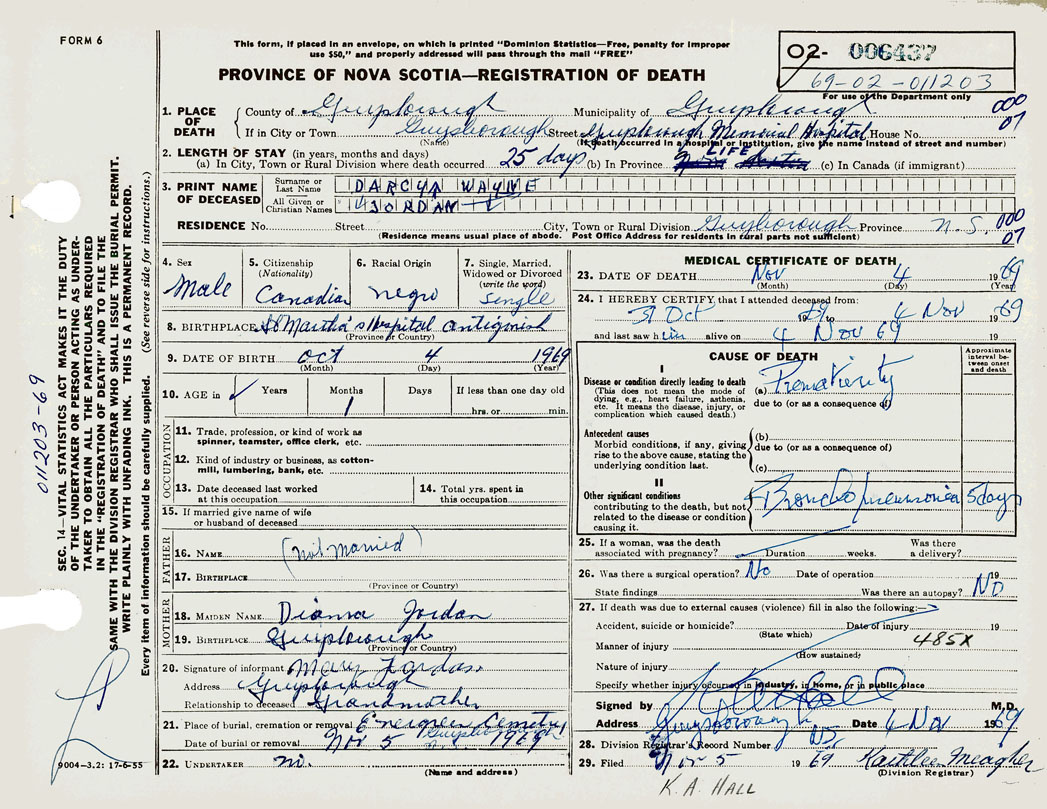 FORM 6
This form, if placed in an envelope, on which is printed "Dominion Statistics—Free, penalty for improper
use $50," and properly addressed will pass through the mail "FREE"
PROVINCE OF NOVA SCOTIA—REGISTRATION OF DEATH
02- 006437
69-02-011203
For use of the Department only
000
07
1. PLACE OF DEATH
County of Guysborough Municipality of Guysborough
If in City or Town Guysborough Street Guysborough Memorial Hospital House No.
(Name) (If death occurred in a hospital or institution, give the name instead of street and number)
2. LENGTH OF STAY (in years, months and days)
(a) In City, Town or Rural Division where death occurred 25 days (b) In Province LIFE (c) In Canada (if immigrant)
3. PRINT NAME OF DECEASED
Surname or Last Name DARCY WAYNE
All Given or Christian Names JORDAN
RESIDENCE No. Street City, Town or Rural Division Guysborough Province N.S. 000
07
(Residence means usual place of abode. Post Office Address for residents in rural parts not sufficient)
4. Sex
Male
5. Citizenship
(Nationality)
Canadian
6. Racial Origin
negro
7. Single, Married,
Widowed or Divorced
(write the word)
Single
8. BIRTHPLACE St Martha's Hospital Antigonish
(Province or Country)
9. DATE OF BIRTH Oct 4 1969
(Month) (Day) (Year)
10. AGE in Years Months Days If less than one day old
1 hrs. or min.
OCCUPATION
11. Trade, profession, or kind of work as
spinner, teamster, office clerk, etc.
12. Kind of industry or business, as cotton-
mill, lumbering, bank, etc.
13. Date deceased last worked
at this occupation
14. Total yrs. spent in
this occupation
15. If married give name of wife
or husband of deceased
FATHER
16. NAME (not married)
17. BIRTHPLACE
(Province or Country)
MOTHER
18. MAIDEN NAME Dianna Jordan
19. BIRTHPLACE Guysborough
(Province or Country)
20. Signature of informant Mary Jordan
Address Guysborough
Relationship to deceased Grandmother
21. Place of burial, cremation or removal Evergreen Cemetry
Guysborough
Date of burial or removal Nov 5 1969
22. UNDERTAKER no.
(Name and address)
9004—3.2: 17-6-55
MEDICAL CERTIFICATE OF DEATH
23. DATE OF DEATH Nov 4 1969
(Month) (Day) (Year)
24. I HEREBY CERTIFY that I attended deceased from:
31 Oct 1969 to 4 Nov 1969
and last saw him alive on 4 Nov 69 19
CAUSE OF DEATH
Approximate
interval be-
tween onset
and death
I
Disease or condition directly leading to death
(This does not mean the mode of
dying, e.g., heart failure, asthenia,
etc. It means the disease, injury, or
complication which caused death.)
(a) Prematurity
due to (or as a consequence of)
Antecedent causes
Morbid conditions, if any, giving
rise to the above cause, stating the
underlying condition last.
(b)
due to (or as a consequence of)
(c)
II
Other significant conditions
contributing to the death, but not
related to the disease or condition
causing it.
Bronchopneumonia 5 days
25. If a woman, was the death Was there
associated with pregnancy? Duration weeks. a delivery?
26. Was there a surgical operation? No Date of operation 19
State findings Was there an autopsy? NO
27. If death was due to external causes (violence) fill in also the following:—
Accident, suicide or homicide? Date of injury 19
(State which)
Manner of injury 485X
(How sustained)
Nature of injury
Specify whether injury occurred in industry, in home, or in public place
Signed by M.D.
Address Guysborough NS Date 4 Nov 1969
28. Division Registrar's Record Number
29. Filed Nov 5 1969 Kathleen Meagher
(Division Registrar)
K. A. HALL
011203-69
SEC. 14—VITAL STATISTICS ACT MAKES IT THE DUTY
OF THE UNDERTAKER OR PERSON ACTING AS UNDER-
TAKER TO OBTAIN ALL THE PARTICULARS REQUIRED
IN THE "REGISTRATION OF DEATH" AND TO FILE THE
SAME WITH THE DIVISION REGISTRAR WHO SHALL ISSUE THE BURIAL PERMIT.
WRITE PLAINLY WITH UNFADING INK. THIS IS A PERMANENT RECORD.
Every item of information should be carefully supplied. (See reverse side for instructions.)